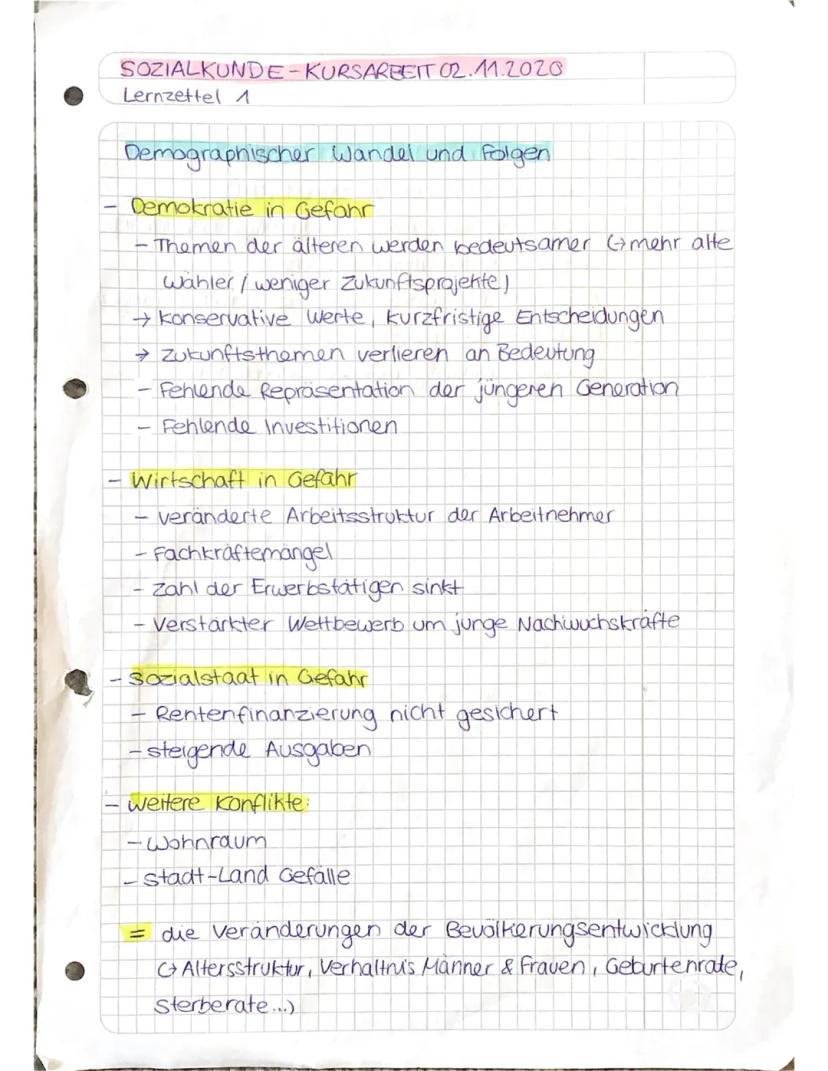 SOZIALKUNDE-KURSARBEIT 02.11.2020
Lernzettel 1
Demographischer Wandel und Folgen
- Demokratie in Gefahr
- Themen der älteren werden bedeutsamer (↪mehr alte
Wähler / weniger Zukunftsprojekte)
→ konservative Werte, kurzfristige Entscheidungen
→ Zukunftsthemen verlieren an Bedeutung
- Fehlende Repräsentation der jüngeren Generation
- Fehlende Investitionen
- Wirtschaft in Gefahr
- veränderte Arbeitsstruktur der Arbeitnehmer
- Fachkräftemangel
- Zahl der Erwerbstätigen sinkt
- Verstärkter Wettbewerb um junge Nachwuchskräfte
- Sozialstaat in Gefahr
- Rentenfinanzierung nicht gesichert
- steigende Ausgaben
- Weitere Konflikte:
- Wohnraum
- Stadt-Land Gefälle
= die Veränderungen der Bevölkerungsentwicklung
(↪ Altersstruktur, Verhältnis Männer & Frauen, Geburtenrate,
Sterberate...)